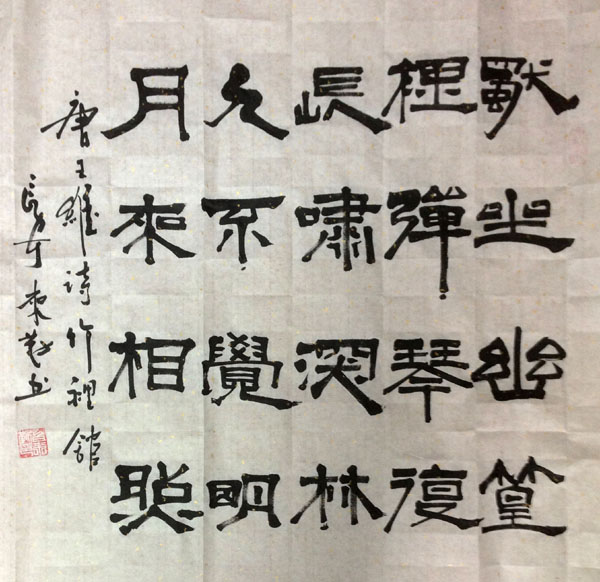 獨坐幽篁
裡彈琴復
長嘯深林
人不覺明
月來相照
唐王維詩竹裡館
书